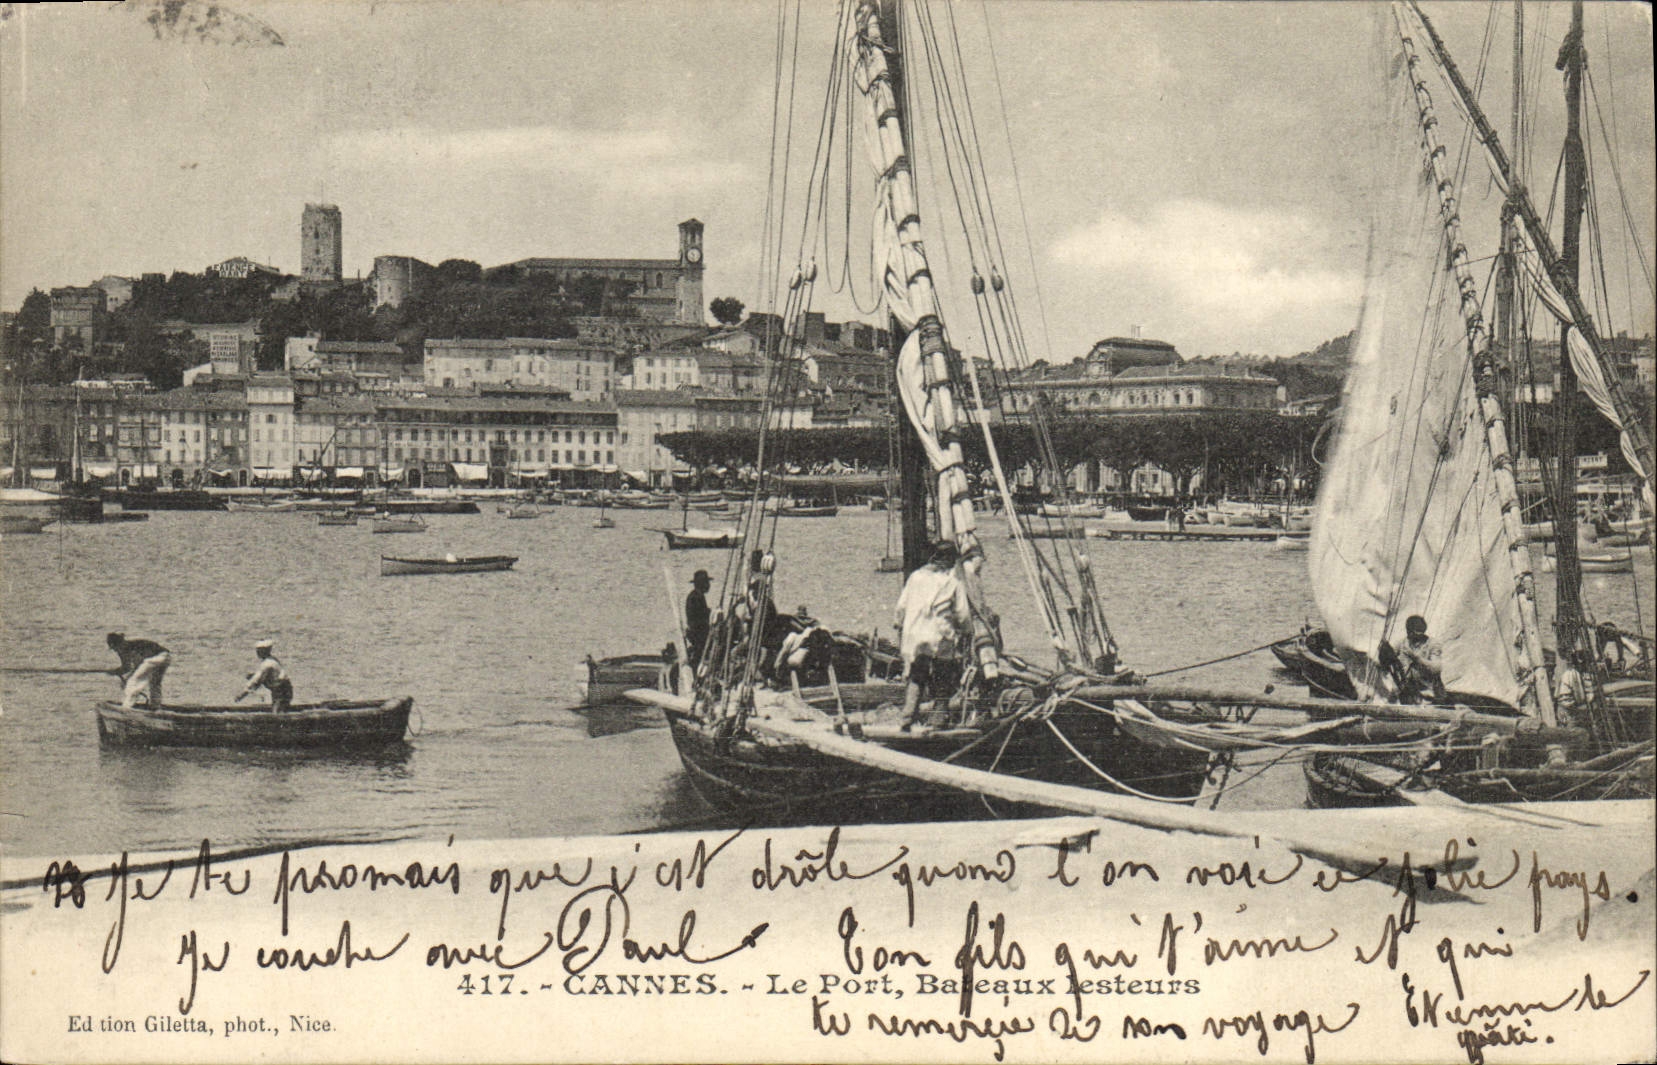 FAIENCES
D'ART
Je te promais que c'est drôle quand l'on voie ce jolie pays.
Je couche avec Paul. Ton fils qui t'aime et qui
417. - CANNES. - Le Port, Bateaux lesteurs
te remerçie de son voyage Etienne le
gâté.
Ed tion Giletta, phot., Nice.